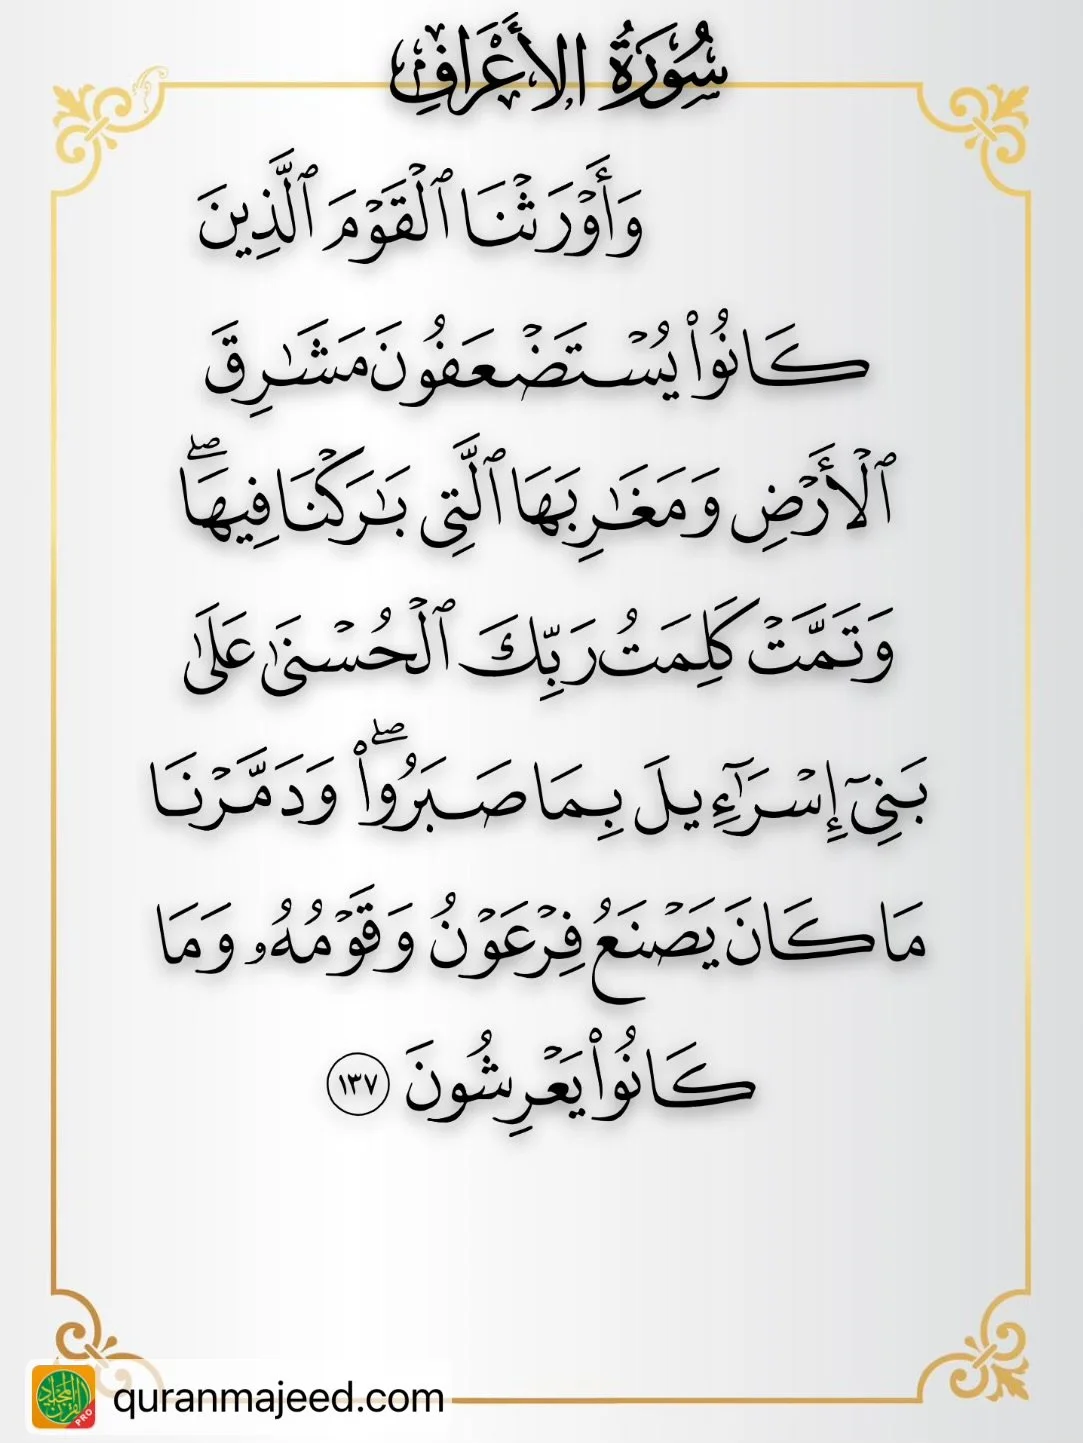 سُورَةُ الأَعْرَافِ
وَأَوْرَثْنَا ٱلْقَوْمَ ٱلَّذِينَ
كَانُوا۟ يُسْتَضْعَفُونَ مَشَـٰرِقَ
ٱلْأَرْضِ وَمَغَـٰرِبَهَا ٱلَّتِى بَـٰرَكْنَا فِيهَا ۖ
وَتَمَّتْ كَلِمَتُ رَبِّكَ ٱلْحُسْنَىٰ عَلَىٰ
بَنِىٓ إِسْرَٰٓءِيلَ بِمَا صَبَرُوا۟ ۖ وَدَمَّرْنَا
مَا كَانَ يَصْنَعُ فِرْعَوْنُ وَقَوْمُهُۥ وَمَا
كَانُوا۟ يَعْرِشُونَ ١٣٧
quranmajeed.com
القرآن المجيد
PRO